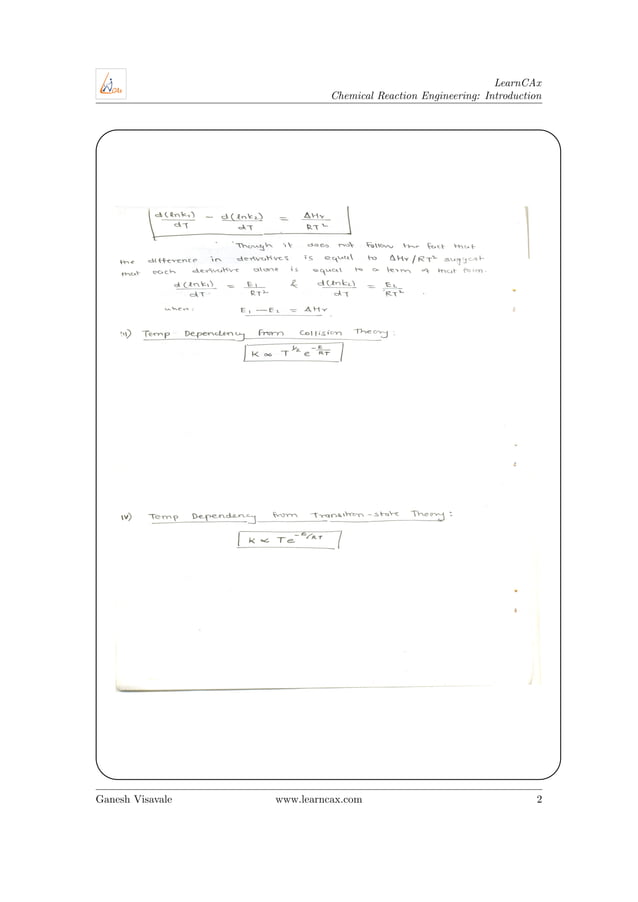 CAx
LearnCAx
Chemical Reaction Engineering: Introduction
d(lnk₁)/dT − d(lnk₂)/dT = ΔHr/RT²
Though it does not follow the fact that
the difference in derivatives is equal to ΔHr/RT² suggest
that each derivative alone is equal to a term of that form.
d(lnk₁)/dT = E₁/RT² & d(lnk₂)/dT = E₂/RT² .
when: E₁ − E₂ = ΔHr
Temp Dependency from Collision Theory:
K ∝ T^½ e^−E/RT
iv) Temp Dependency from Transition-state Theory:
K ∝ T e^−E/RT
Ganesh Visavale www.learncax.com 2